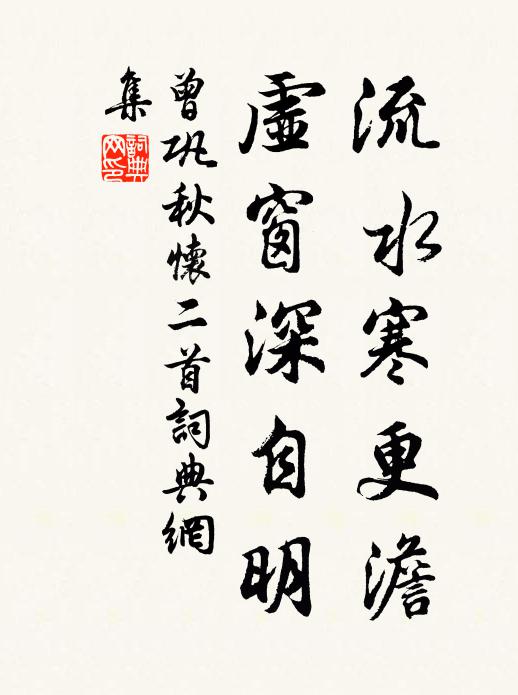 流水寒更澹
虛窗深自明
曾巩秋懷二首詞典網
集
詞典網印